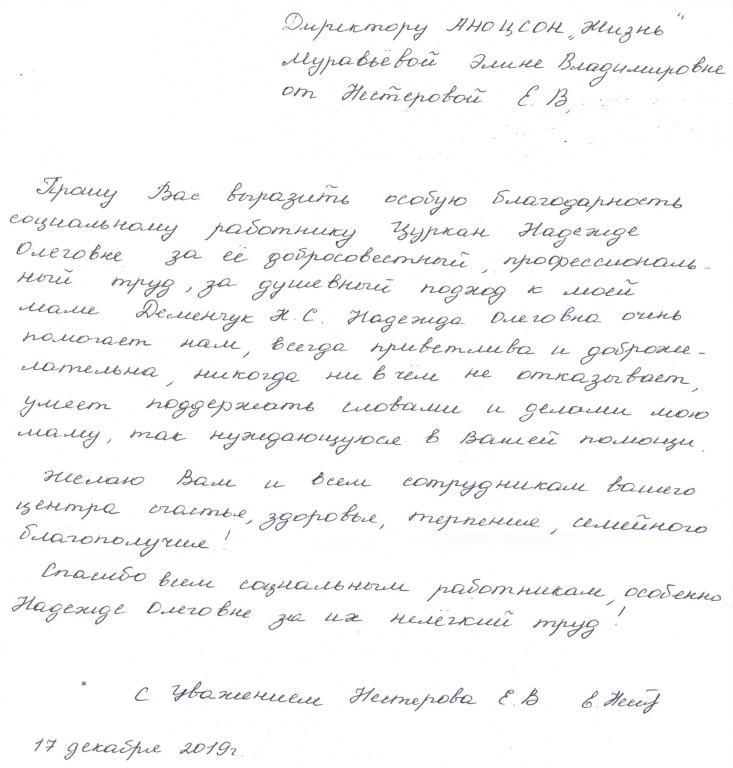 Директору АНОЦСОН „Жизнь"
Муравьёвой Элине Владимировне
от Нестеровой Е. В,
Прошу Вас выразить особую благодарность
социальному работнику Цуркан Надежде
Олеговне за её добросовестный, профессиональ-
ный труд, за душевный подход к моей
маме Деменчук Н.С. Надежда Олеговна очень
помогает нам, всегда приветлива и доброже-
лательна, никогда ни в чём не отказывает,
умеет поддержать словами и делами мою
маму, так нуждающуюся в Вашей помощи.
Желаю Вам и всем сотрудникам вашего
центра счастья, здоровья, терпения, семейного
благополучия!
Спасибо всем социальным работникам, особенно
Надежде Олеговне за их нелёгкий труд!
С уважением Нестерова Е. В Е. Нест
17 декабря 2019г.